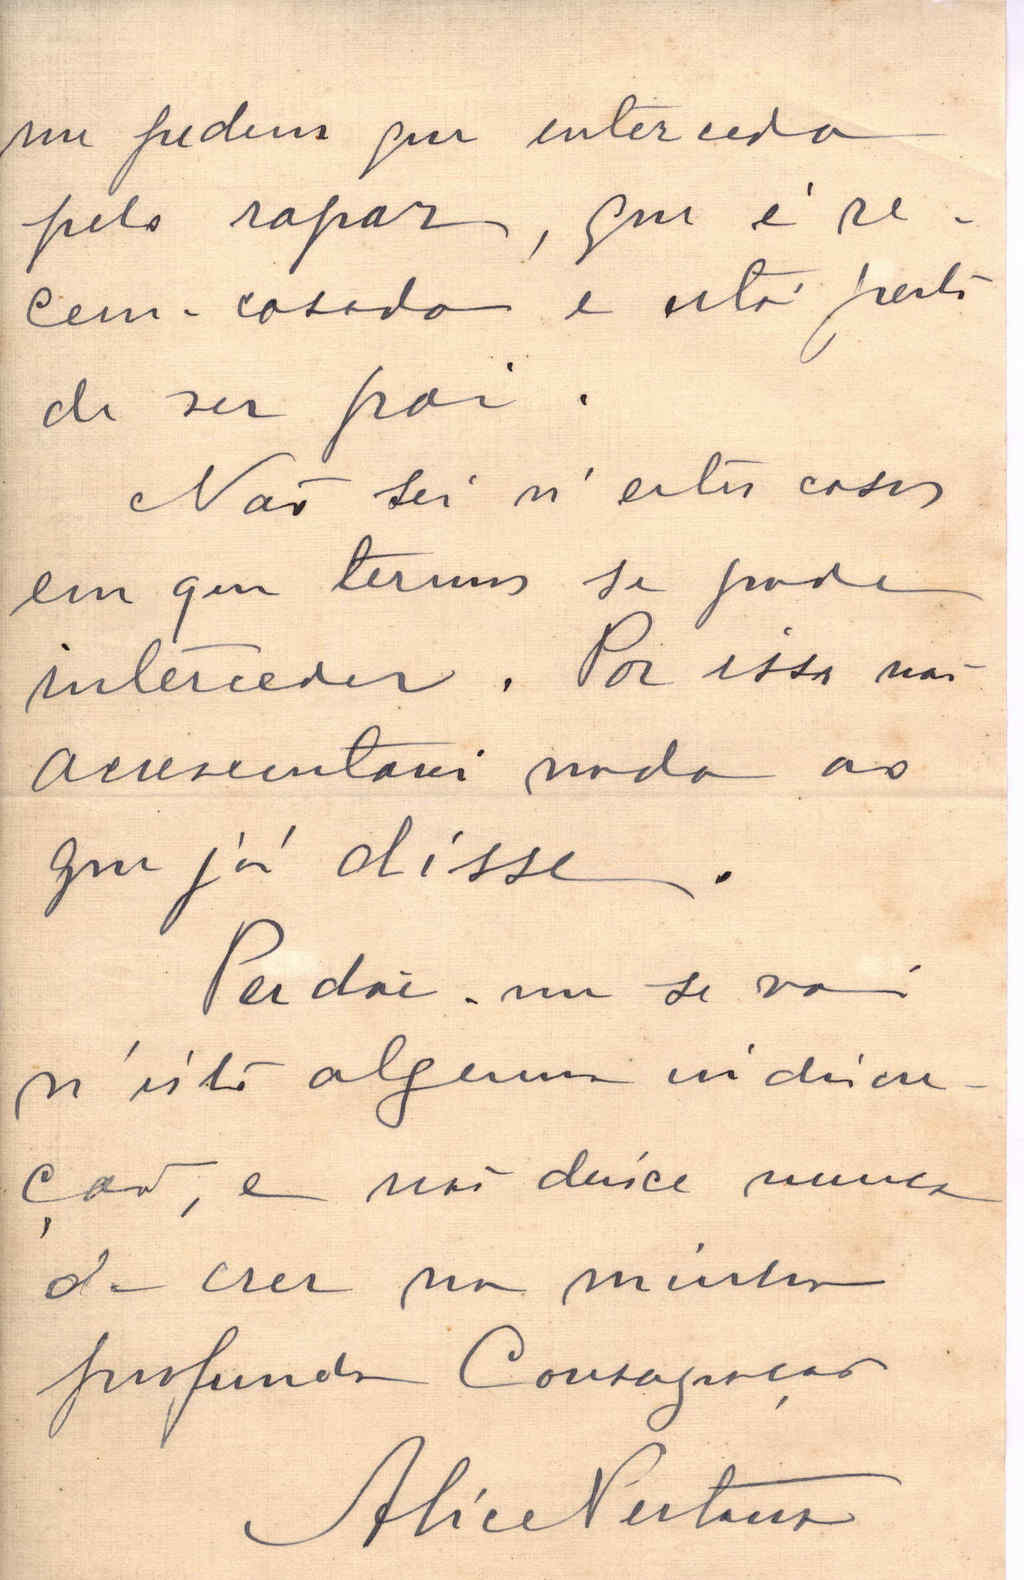 me pedem que interceda
pelo rapaz, que é re-
cem-casado e está perto
de ser pai.
Não sei n'estes casos
em que termos se pode
interceder. Por isso não
acrescentarei nada ao
que já disse.
Perdôe-me se vai
n'isto alguma indiscre-
ção, e não deixe nunca
de crer na minha
profunda Consagração
Alice Pestana